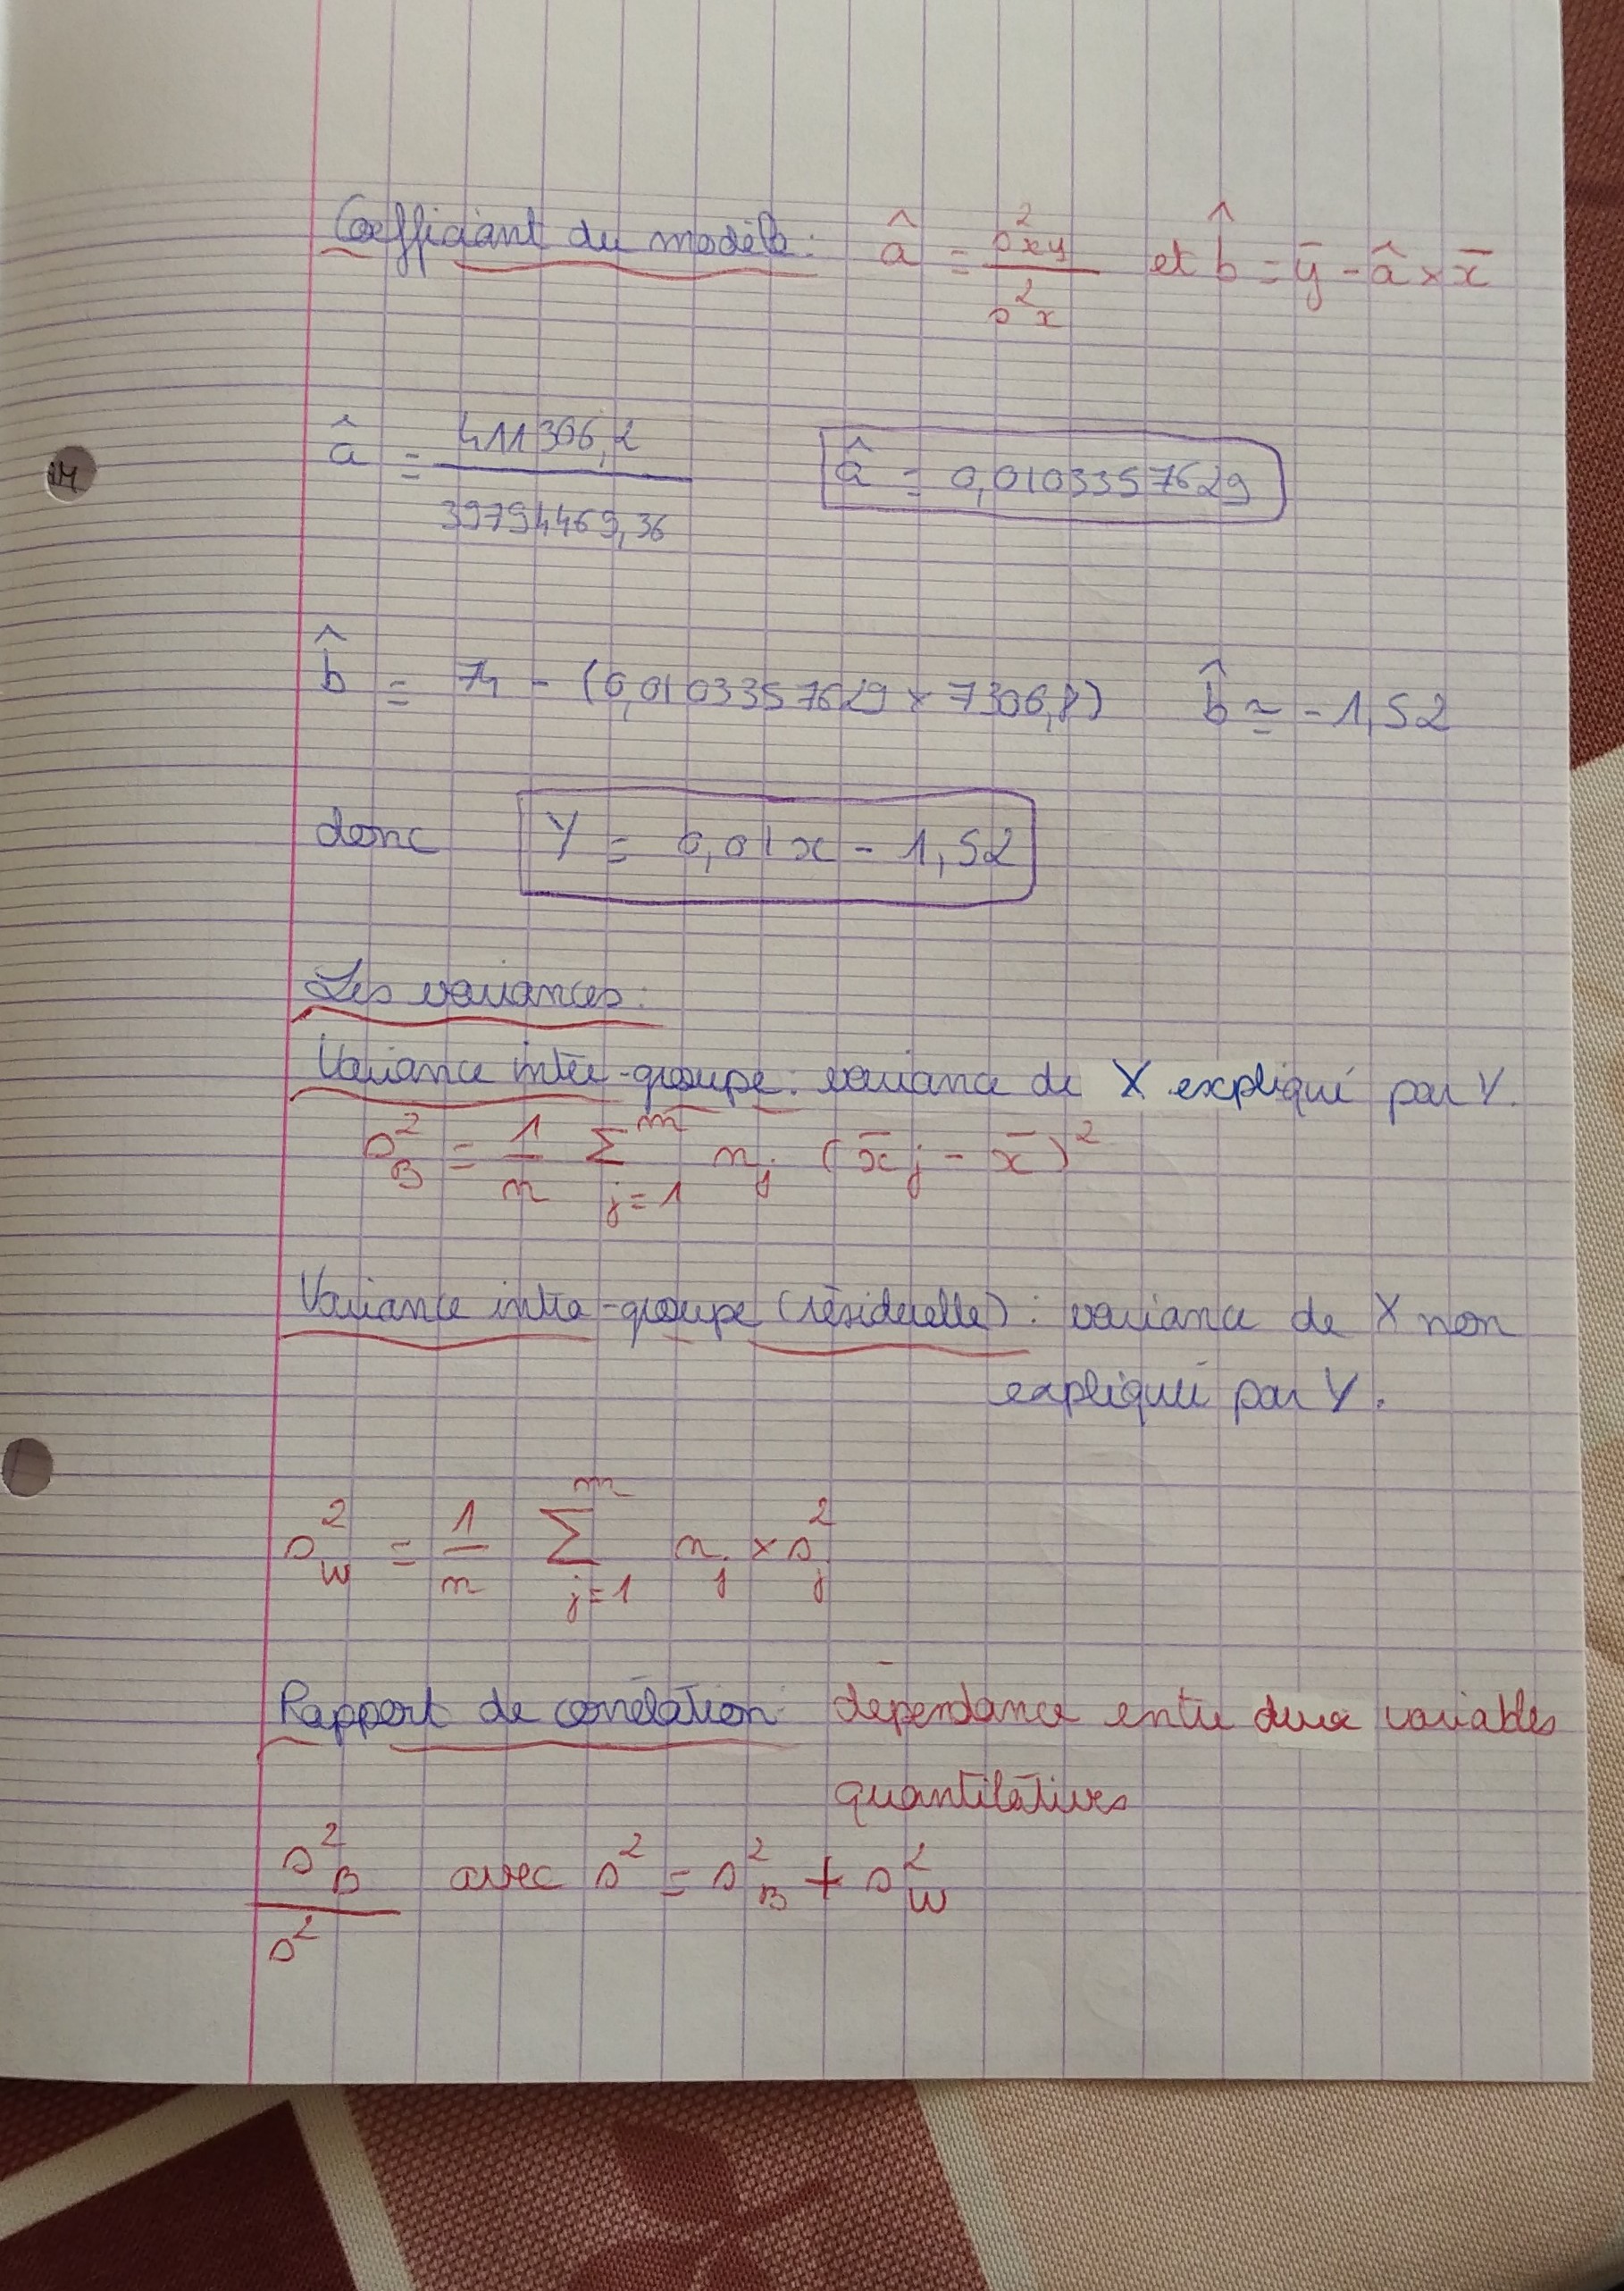 Coefficiant du modèle: â = s²xy / s²x et b̂ = ȳ - â × x̄
â = 411306,2 / 39794469,36 â = 0,0103357629
b̂ = 74 - (0,0103357629 × 7306,8) b̂ ≃ -1,52
donc Y = 0,01x - 1,52
Les variances:
Variance inter-groupe: variance de X expliqué par Y.
s²B = 1/n Σ^m j=1 nj (x̄j - x̄)²
Variance intra-groupe (résiduelle): variance de X non
expliquée par Y.
s²W = 1/n Σ^m j=1 nj × s²j
Rapport de corrélation: dépendance entre deux variables
quantitatives
s²B / s² avec s² = s²B + s²W